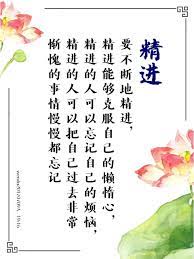 精进
要不断地精进，
精进能够克服自己的懒惰心，
精进的人可以忘记自己的烦恼，
精进的人可以把自己过去非常
惭愧的事情慢慢都忘记